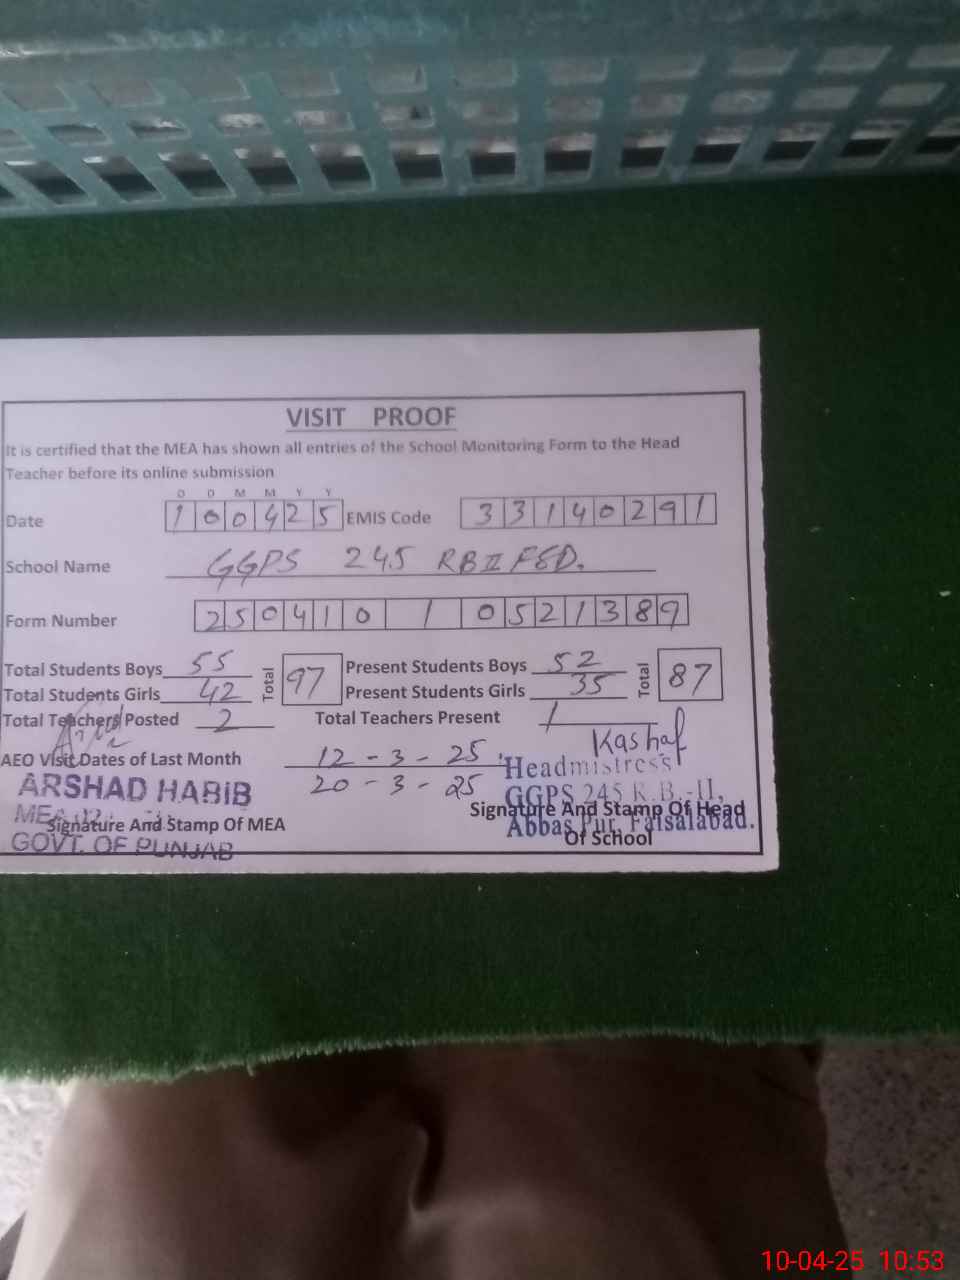 VISIT PROOF
It is certified that the MEA has shown all entries of the School Monitoring Form to the Head
Teacher before its online submission
D D M M Y Y
Date 1 0 0 4 2 5 EMIS Code 3 3 1 4 0 2 9 1
School Name GGPS 245 RB II FSD.
Form Number 2 5 0 4 1 0 / 0 5 2 1 3 8 9
Total Students Boys 55 Total 97 Present Students Boys 52 Total 87
Total Students Girls 42 Present Students Girls 35
Total Teachers Posted 2 Total Teachers Present 1
Kashaf
AEO Visit Dates of Last Month 12 - 3 - 25
20 - 3 - 25
Headmistress
ARSHAD HABIB
GGPS 245 R.B.-II,
MEA
Signature And Stamp Of Head
Of School
Abbas Pur, Faisalabad.
Signature And Stamp Of MEA
GOVT. OF PUNJAB
10-04-25 10:53